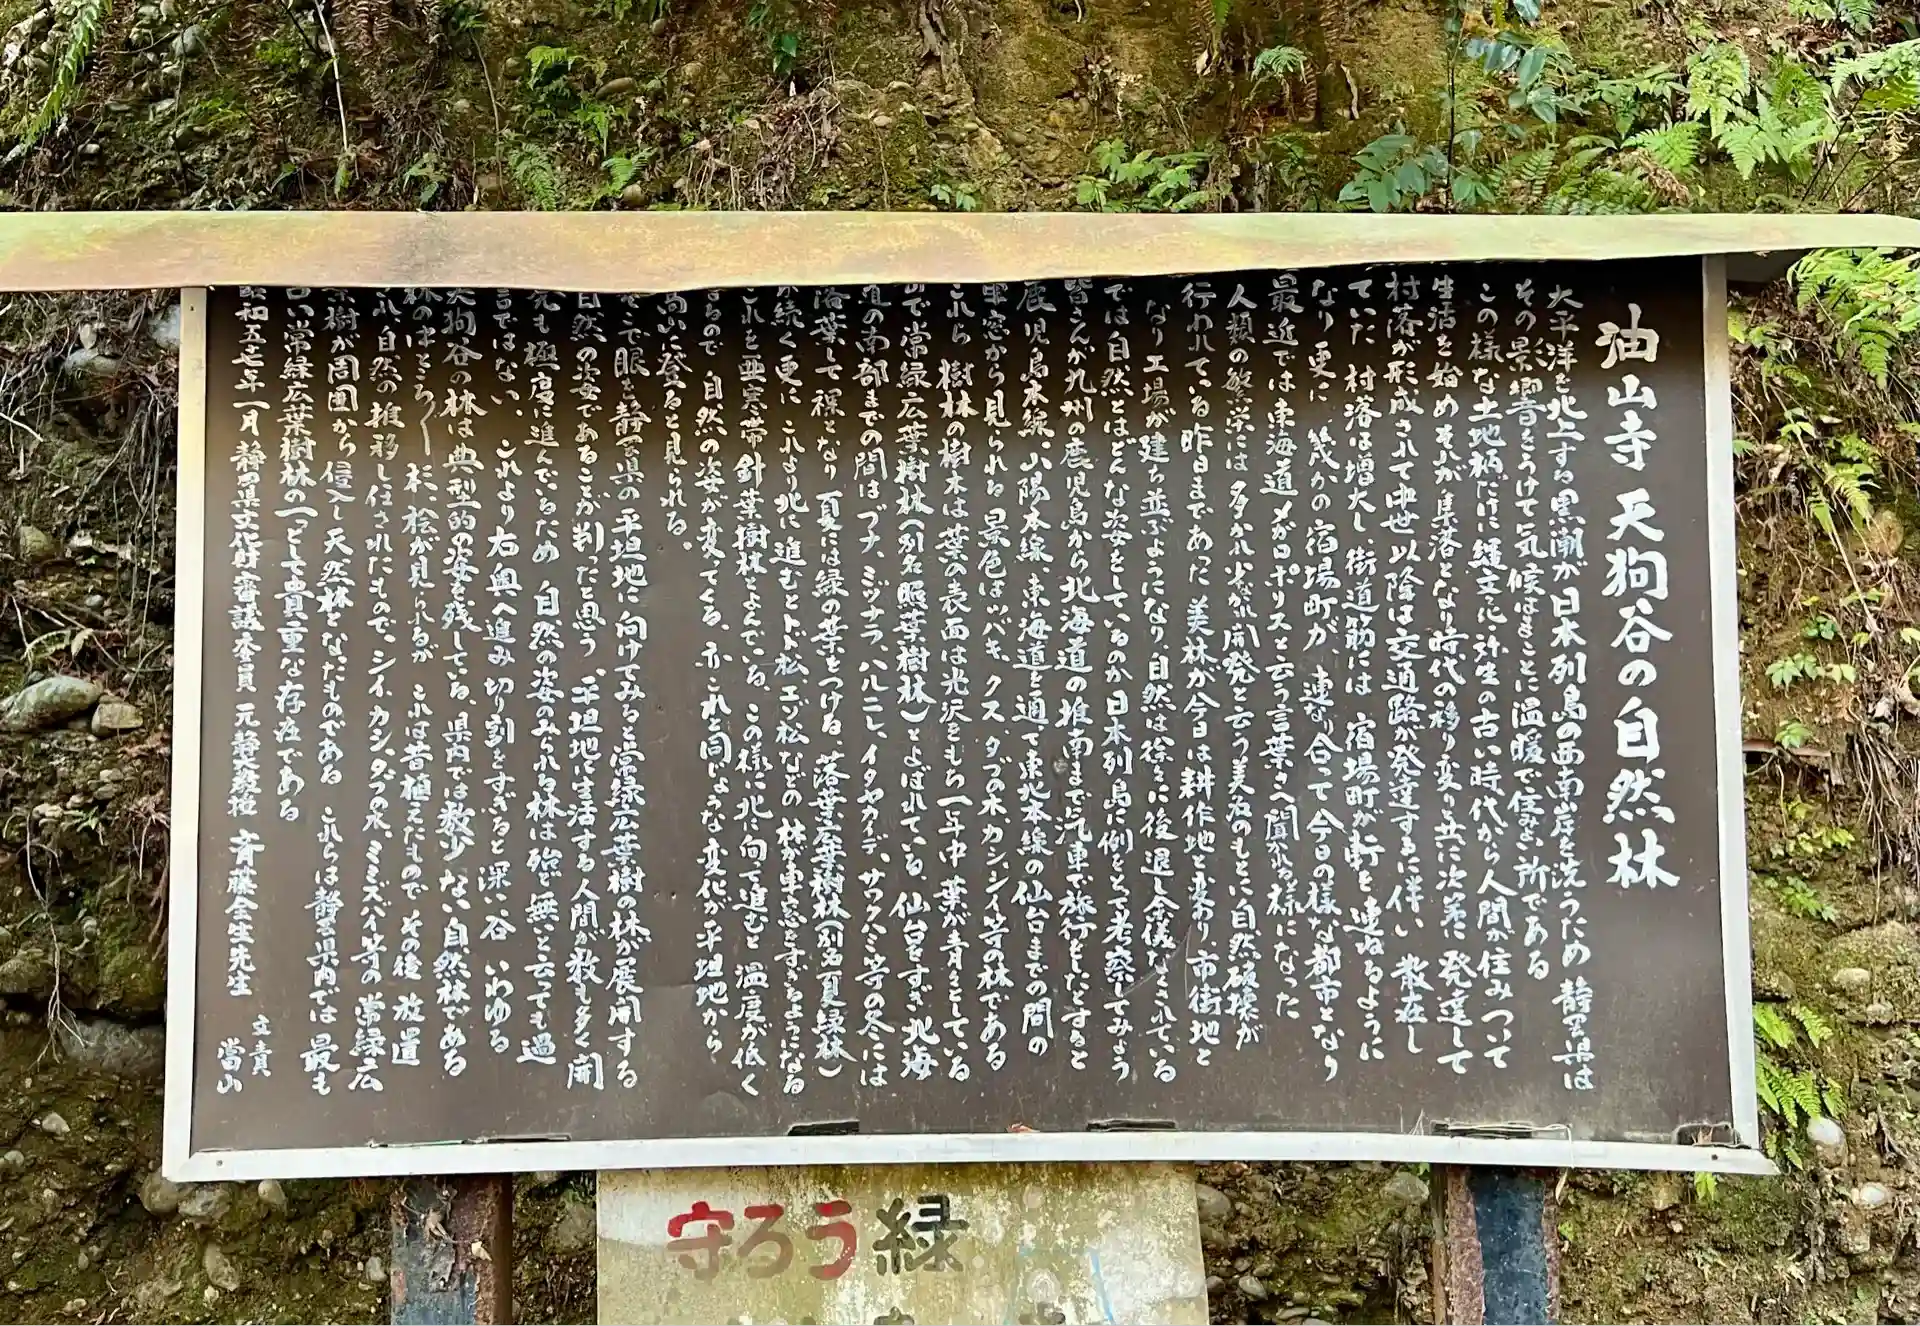 油山寺 天狗谷の自然林
大平洋を北上する黒潮が日本列島の西南岸を洗うため 静岡県は
その影響をうけて気候はまことに温暖で住みよい所である
この様な土地柄だけに縄文 弥生の古い時代から人間が住みついて
生活を始め それが集落となり時代の移り変りと共に次第に発達して
村落が形成されて中世以降は交通路が発達するに伴い 散在し
ていた 村落は増大し、街道筋には 宿場町が軒を連ねるように
なり 更に 幾かの宿場町が 連なり合って今日の様な都市となり
最近では東海道メガロポリスと云う言葉さえ聞かれる様になった
人類の繁栄には多かれ少なかれ開発と云う美名のもとに自然破壊が
行われている 昨日まであった 美林が今日は耕作地と変わり、市街地と
なり 工場が建ち並ぶようになり、自然は徐々に後退し余儀なくされている
では自然とはどんな姿をしているのか日本列島に例をとって考察してみよう
皆さんが九州の鹿児島から北海道の 南まで汽車で旅行をしたとすると
鹿児島本線、山陽本線 東海道を通って東北本線の仙台までの間の
車窓から見られる景色はツバキ、クス、タブの木 カシ シイ等の林である
これら 樹林の樹木は葉の表面は光沢をもち一年中 葉が青々としている
ので常緑広葉樹林(別名照葉樹林)とよばれている。仙台をすぎ北海
道の南部までの間はブナ、ミヅナラ、ハルニレ、イタヤカイデ、サワグルミ等の冬には
落葉して裸となり 夏には緑の葉をつける、落葉広葉樹林(別名夏緑林)
が続く更に これより北に進むとトド松、エゾ松などの 林が車窓をすぎるようになる
これを亜寒帯針葉樹林とよんでいる、この様に北に向って進むと温度が低く
なるので 自然の姿が変ってくる、又これと同じような変化が平坦地から
高山に登ると見られる。
そこで眼を静岡県の平坦地に向けてみると常緑広葉樹の林が展開する
自然の姿であることが判ったと思う、平坦地に生活する人間が数も多く開
発も極度に進んでいるため 自然の姿のみられる林は殆ど無いと云っても過
言ではない、 これより右奥へ進み 切り割をすぎると 深い谷 いわゆる
天狗谷の林は典型的の姿を残している。県内では数少ない自然林である
林のはところ〲 杉、桧が見られるが これは昔植えたもので その後 放置
され、自然の推移し任されたもので、シイ、カシ、タブの木、ミミズバイ等の常緑広
葉樹が周囲から 侵入し天然林となったものである これらは静岡県内では最も
古い常緑広葉樹林の一つとして貴重な存在である
昭和五 年一月 静岡県文化財審議委員 元静大教授 斉藤全生先生
文責
當山
守ろう緑